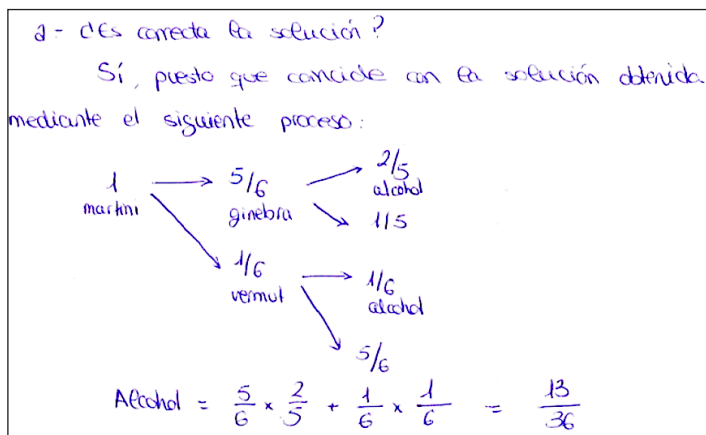 a - ¿Es correcta la solución?
Sí, puesto que coincide con la solución obtenida
mediante el siguiente proceso:
1 → 5/6 → 2/5
martini ginebra alcohol
1/5
1/6 → 1/6
vermut alcohol
5/6
Alcohol = 5/6 × 2/5 + 1/6 × 1/6 = 13/36